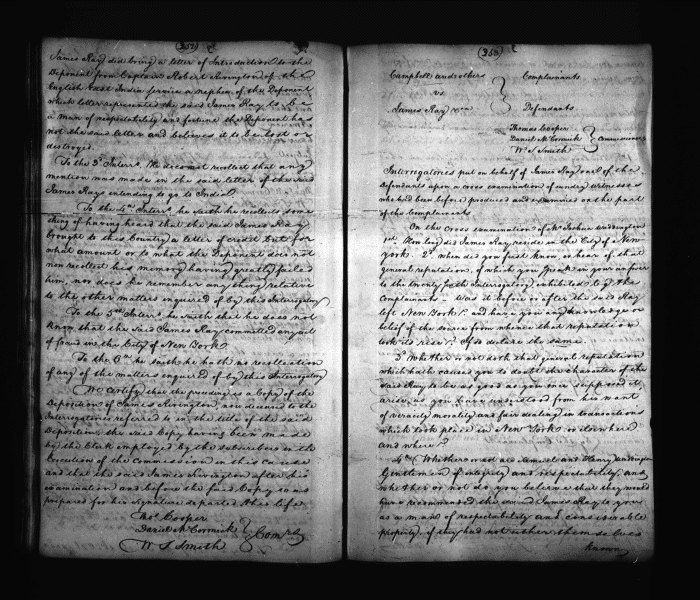 (352)
James Ray did bring a letter of Introduction to the
Deponent from Captain Robert Rivington of the
English East India Service a nephew of the Deponent
which letter represented the said James Ray to be
a man of respectability and fortune the Deponent has
not the said letter and believes it to be lost or
destroyed.
To the 3d Interry. He does not recollect that any
mention was made in the said letter of the said
James Rays intending to go to India
To the 4th Interry. he saith he recollects some
thing of having heard that the said James Ray
brought to this Country a letter of credit but for
what amount or to whom the Deponent does not
now recollect his memory having greatly failed
him, nor does he remember any thing relative
to the other matters enquired of by this Interrogatory
To the 5th Interry. he saith that he does not
know that the said James Ray committed any act
of fraud in the City of New York
To the 6th he saith he hath no recollection
of any of the matters enquired of by this Interrogatory
We certify that the preceding is a Copy of the
Deposition of James Rivington now deceased to the
Interrogatories referred to in the title of the said
Deposition, the said Copy having been made
by the Clerk employed by the subscribers in the
Execution of the Commission in this Cause
and that the said James Rivington after his
examination and before the said Copy was
prepared for his signature departed this life
Thos. Cooper
Daniel McCormick } Comrs
W S Smith
(353)
Campbell and others Complainants
vs
James Ray Defendants
Thomas Cooper
Daniel McCormick } Commissioners
Wm S Smith
Interrogatories put on behalf of James Ray one of the
defendants upon a cross examination of sundry witnesses
who had been before produced and examined on the part
of the Complainants
On the cross examination of Mr Joshua Waddington
1st. How long did James Ray reside in the City of New
York. 2d when did you first know, or hear of, that
general reputation, of which you speak in your answer
to the Interrogatory exhibited by the
Complainants. Was it before or after the said Ray
left New York? and have you any knowledge or
belief of the source from whence that reputation
took its rise? If so declare the same.
3d Whether or not doth that general reputation
which hath caused you to doubt the character of the
said Ray to be as good as you once supposed it,
arise, as you have understood from his want
of veracity morality and fair dealing in transactions
which took place in New York or elsewhere
and where?
4th. Whether or not are Samuel and Henry Waddington
Gentlemen of integrity and respectability, and
whether or not do you believe that they would
have recommended the said James Ray to you
as a man of respectability and considerable
property, if they had not either themselves
known